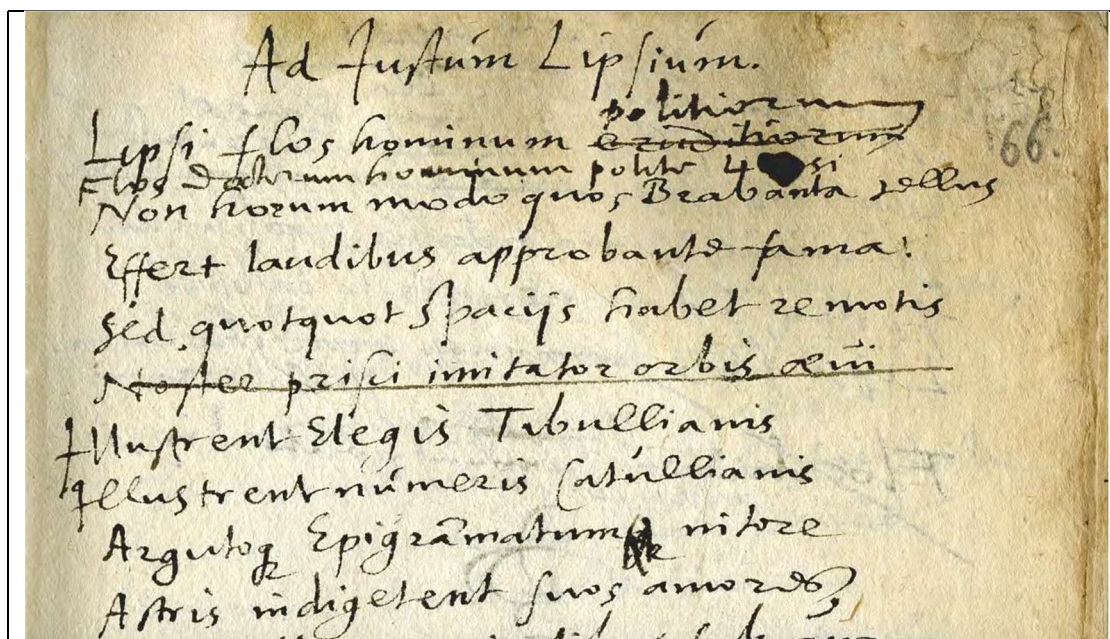 Ad Justúm Lipsiúm.
politiorum
Lipsi flos hominum eruditiorum
66.
Flos doctorum hominum polite si
Non horum modo quos Brabanta tellus
Effert laudibus approbante fama:
Sed quotquot spaciis habet remotis
Noster prisci imitator orbis ævi
Illustrent Elegis Tibullianis
Illustrent númeris Catúllianis
Argutoq; Epigrammatum nitore
Astris indigetent suos amores,